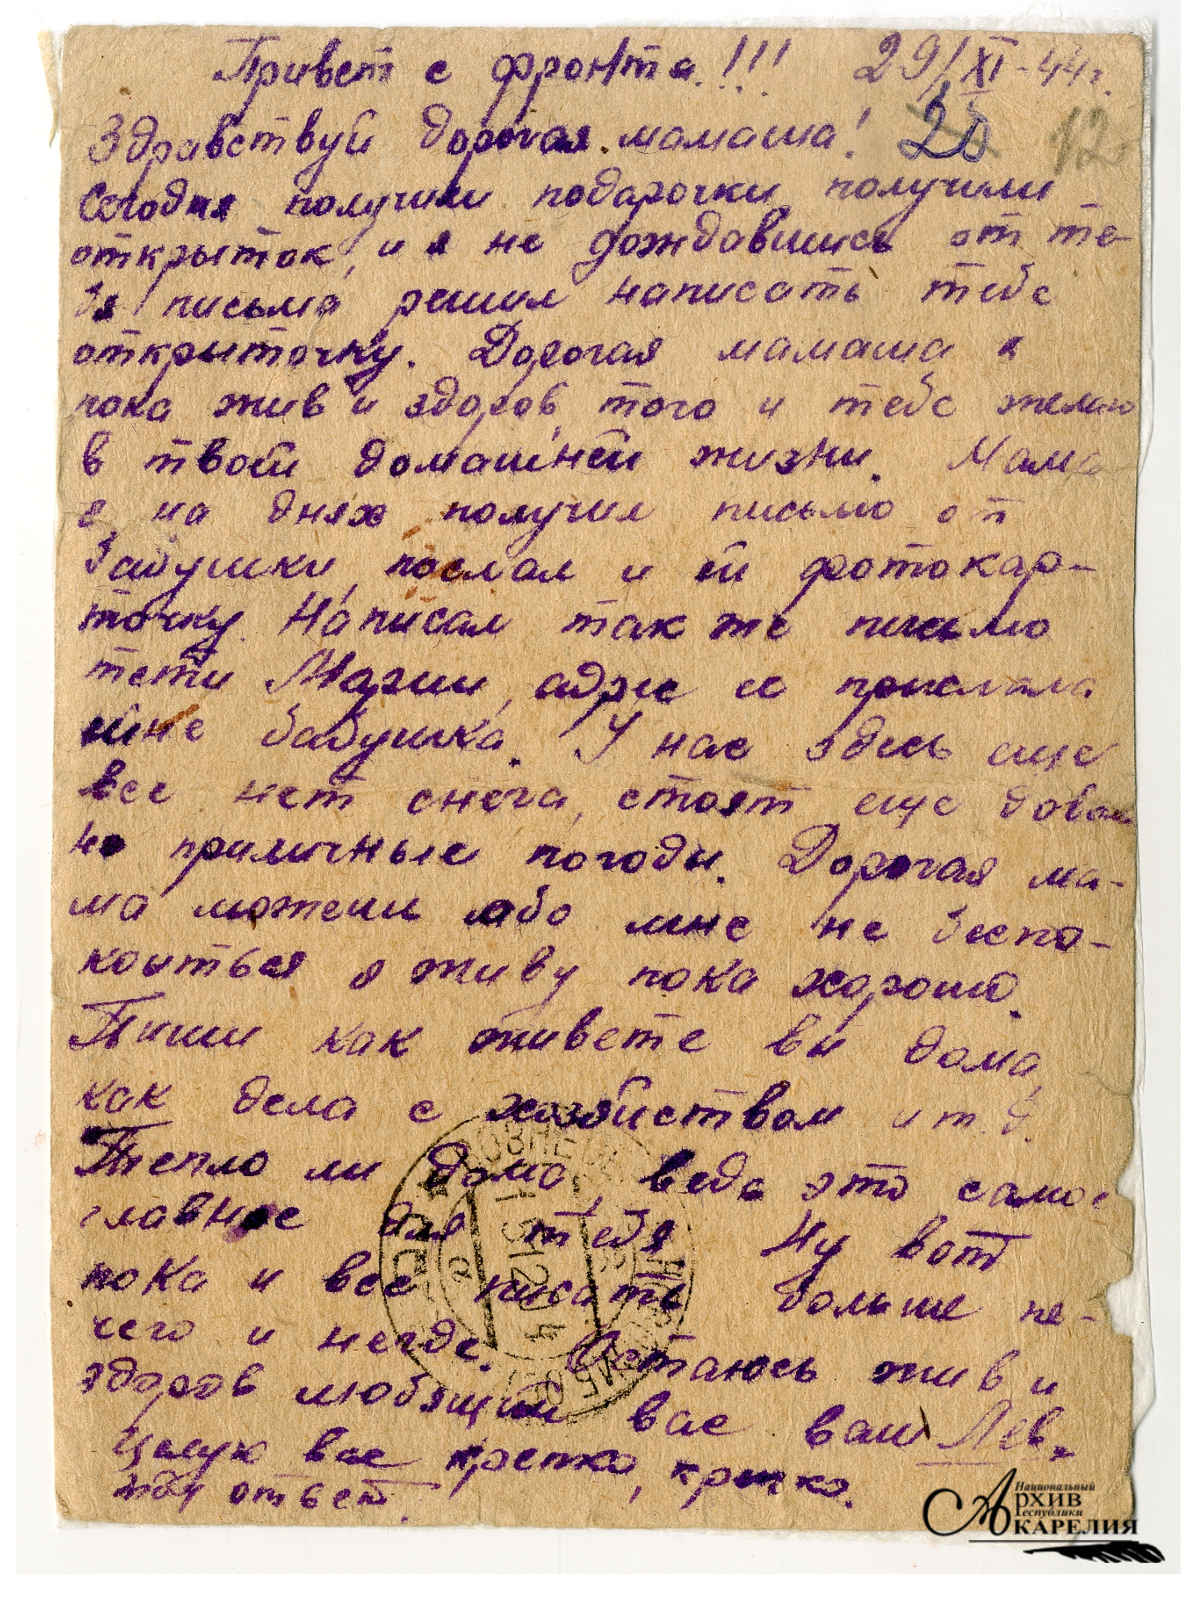 Привет с фронта!!! 29/XI-44г.
Здравствуй дорогая мамаша! 20 12
Сегодня получили подарочки, получили
открыток, и я не дождавшись от те-
бя письма решил написать тебе
открыточку. Дорогая мамаша я
пока жив и здоров, того и тебе желаю
в твоей домашней жизни. Мама
я на днях получил письмо от
бабушки, послал и ей фотокар-
точку. Написал так же письмо
тети Марии, адрес ее прислала
мне бабушка. У нас здесь еще
все нет снега, стоят еще доволь
но приличные погоды. Дорогая ма-
ма можеш обо мне не беспо-
коиться я живу пока хорошо.
Пиши как живете вы дома,
как дела с хозяйством и т.д.
Тепло ли дома, ведь это самое
главное для тебя. Ну вот
пока и все писать больше не-
чего и негде. Остаюсь жив и
здоров любящий вас ваш Лев.
Целую вас крепко, крепко.
жду ответ.
Национальный
Архив
Республики
Карелия